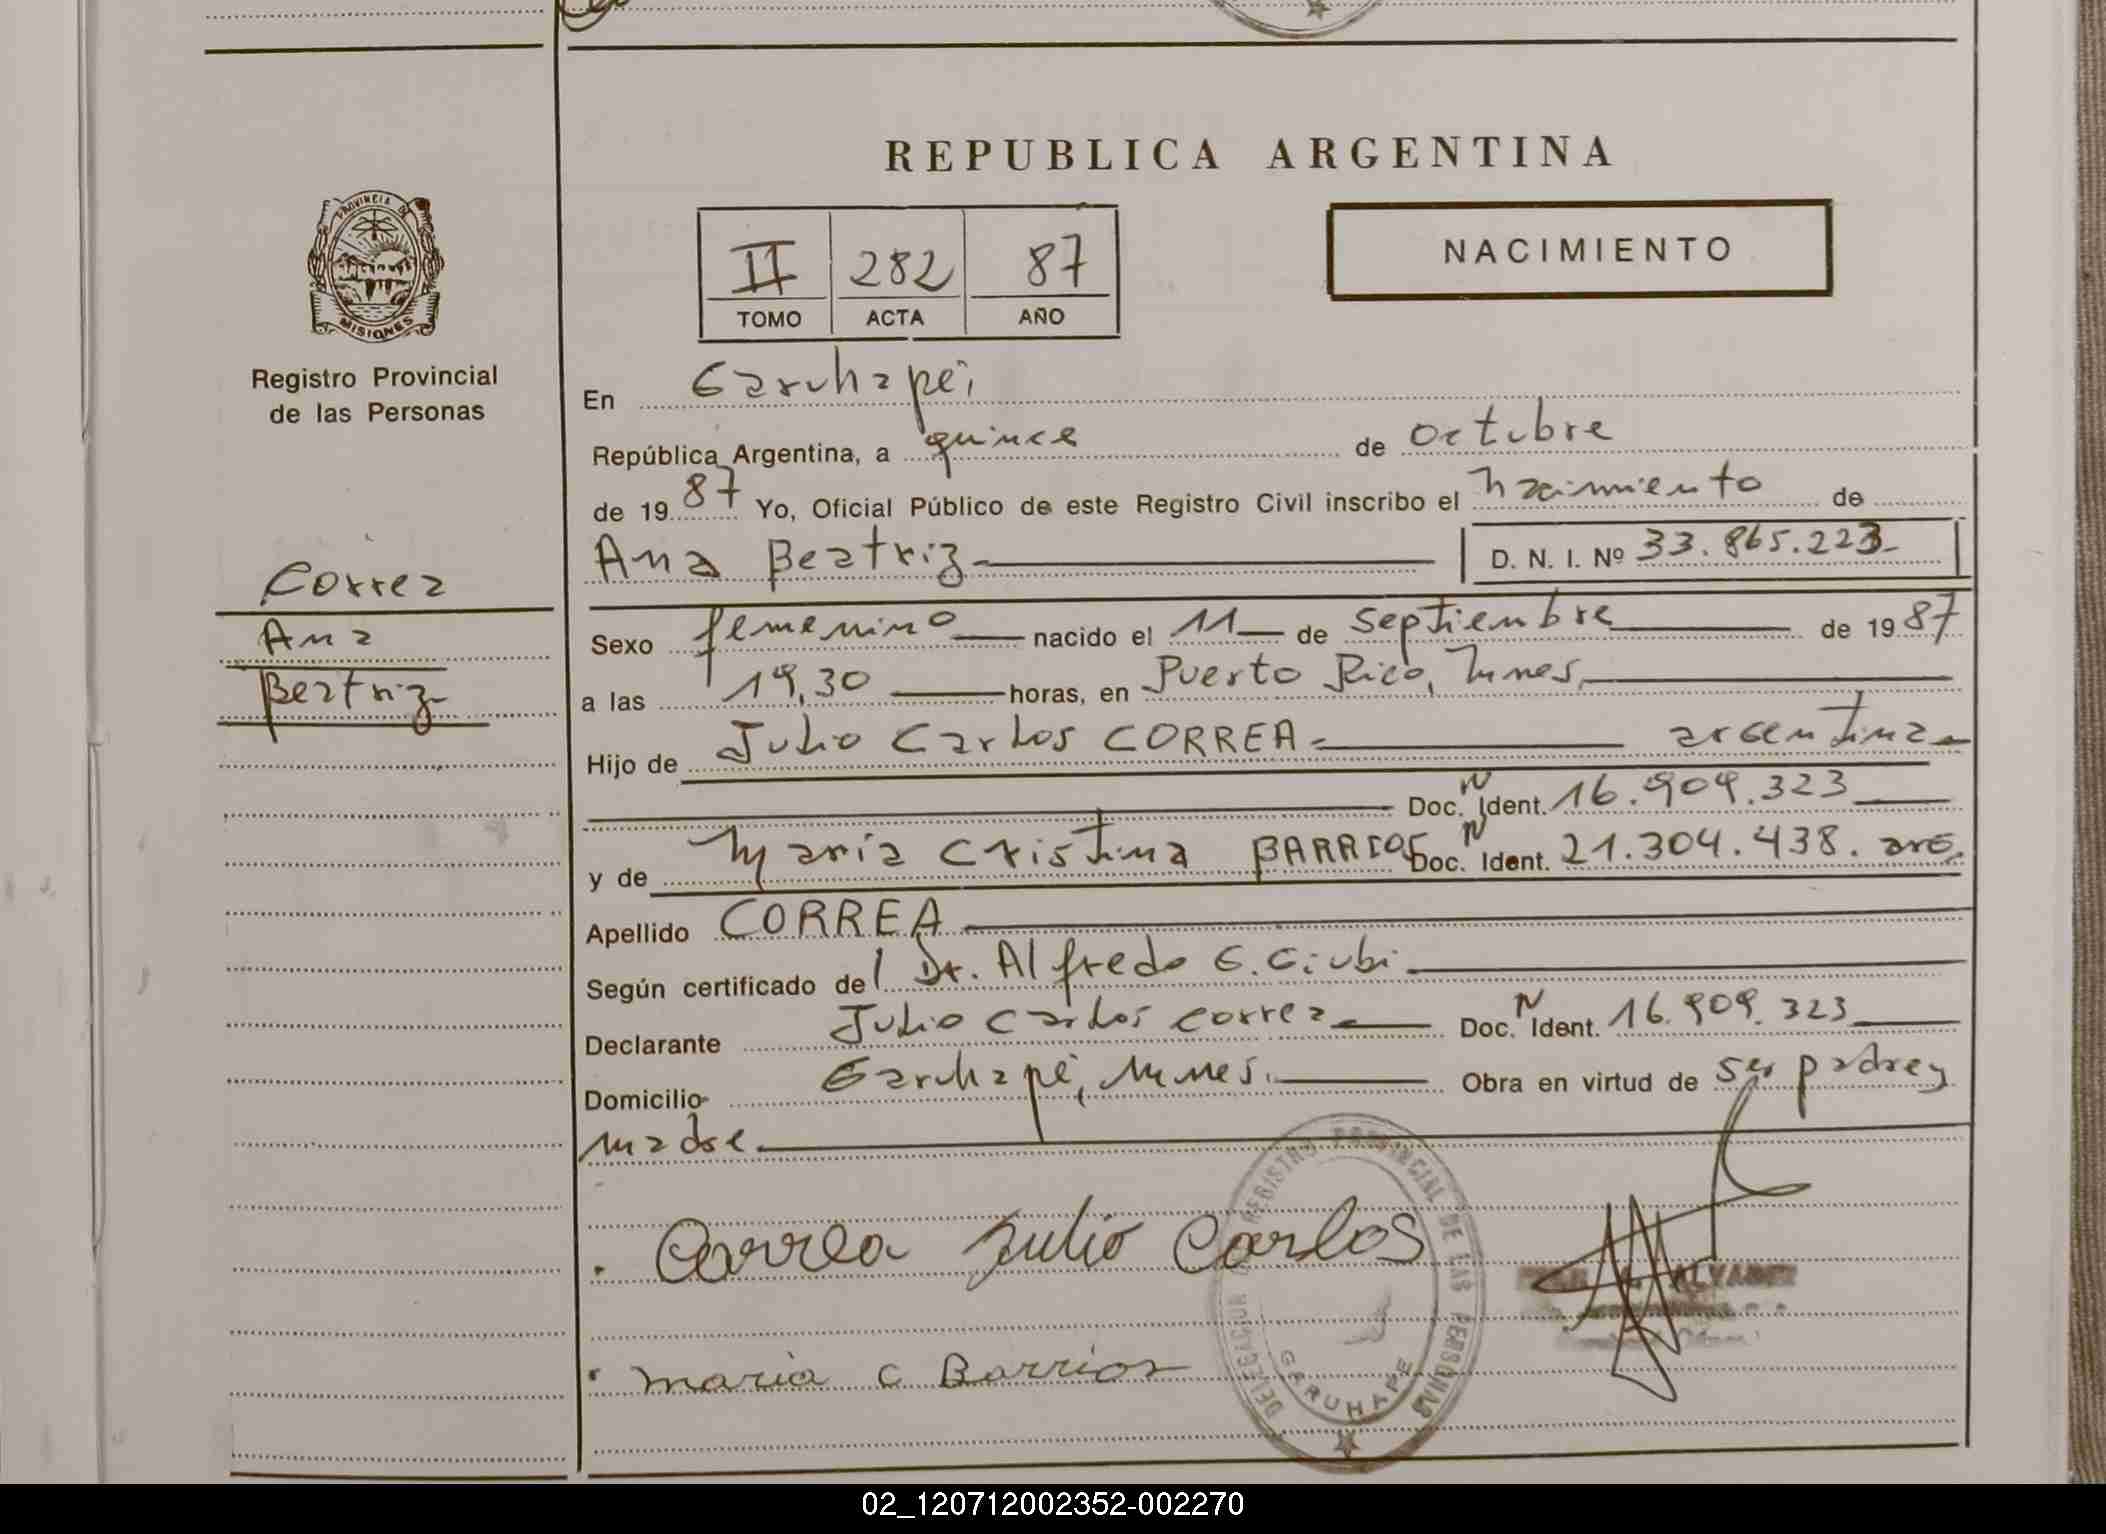 REPUBLICA ARGENTINA
PROVINCIA DE
MISIONES
Registro Provincial
de las Personas
II 282 87
TOMO ACTA AÑO
NACIMIENTO
En Garuhapé,
República Argentina, a quince de octubre
de 19 87 Yo, Oficial Público de este Registro Civil inscribo el nacimiento de
Ana Beatriz D. N. I. Nº 33.865.223
Correa
Ana
Beatriz
Sexo femenino nacido el 11 de septiembre de 19 87
a las 19,30 horas, en Puerto Rico,
Hijo de Julio Carlos CORREA argentina
Doc. N Ident. 16.909.323
y de Maria Cristina BARRIOS Doc. N Ident. 21.304.438. arg.
Apellido CORREA
Según certificado del Dr. Alfredo G.
Declarante Julio Carlos Correa Doc. N Ident. 16.909.323
Domicilio Garuhapé, Obra en virtud de ser padre y
madre
Correa Julio Carlos
maria C Barrios
DELEGACION REGISTRO PROVINCIAL DE LAS PERSONAS
GARUHAPE
ALVAREZ
02_120712002352-002270